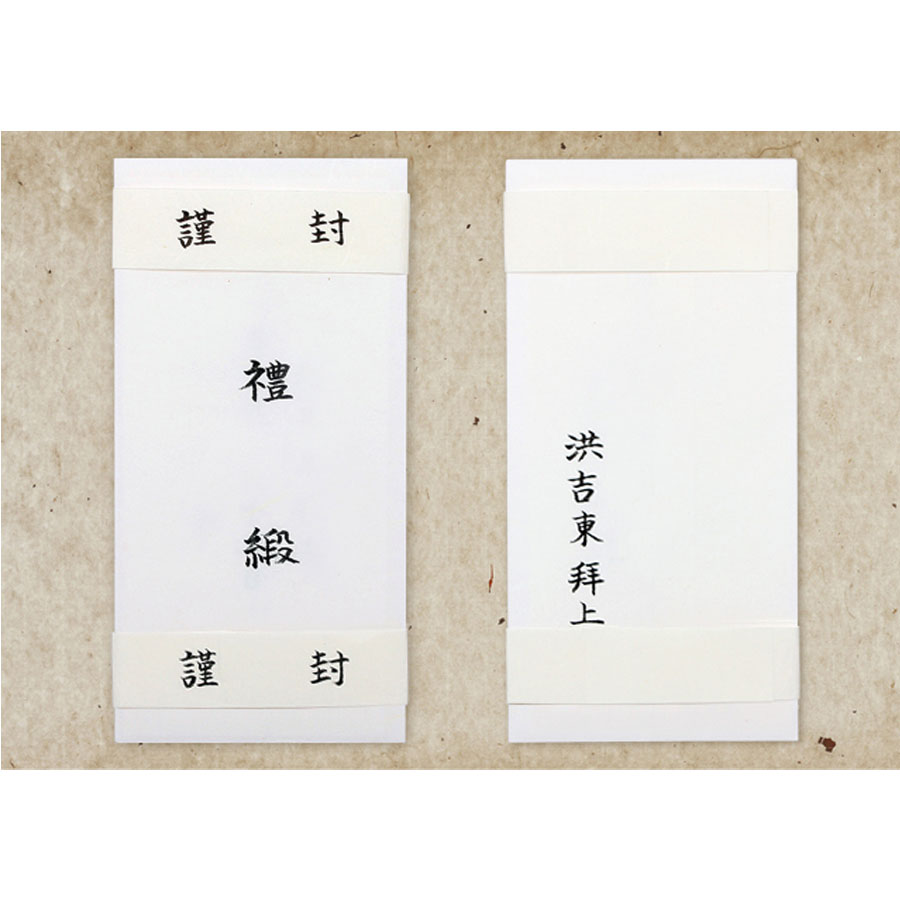 謹 封
禮緞
謹 封
洪吉東拜上